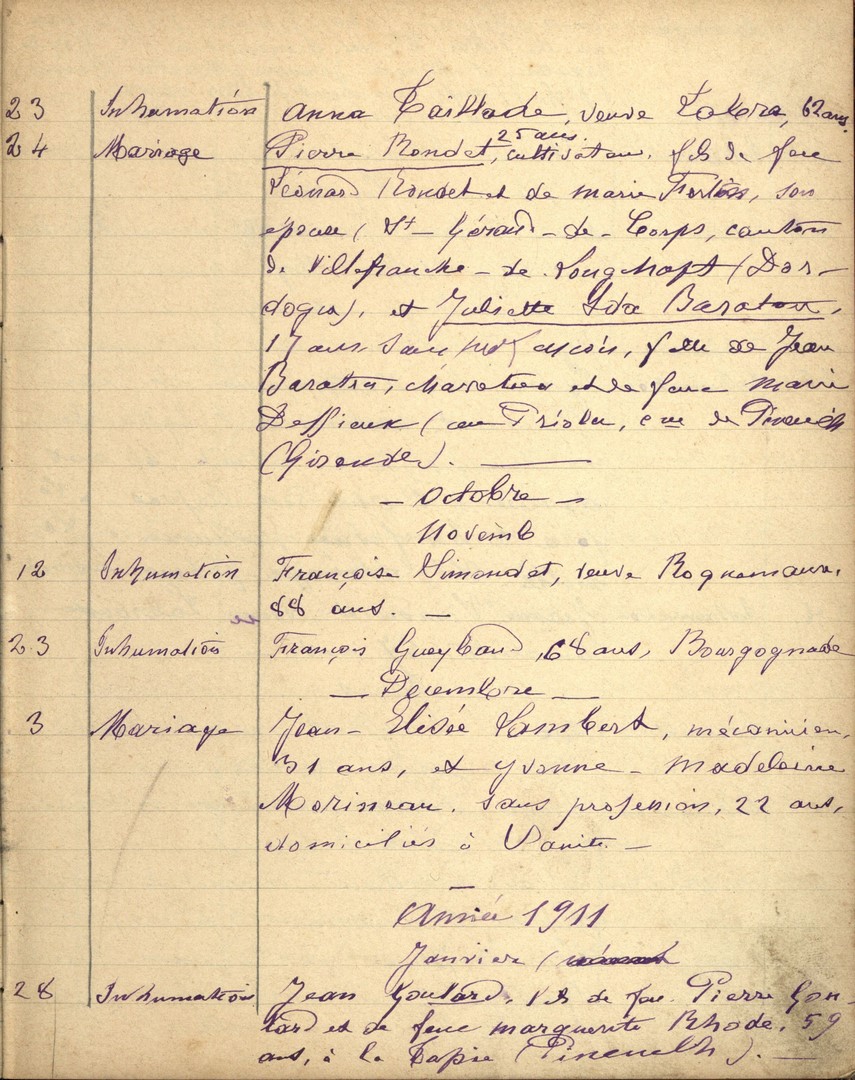 23 Inhumation Anna Taillade, veuve 62 ans.
24 Mariage Pierre Rondet, 25 ans. cultivateur, fils de feu
Léonard Rondet et de Marie son
épouse (St-Géraud-de-Corps, canton
de Villefranche-de-Longchapt (Dor-
dogne), et Juliette Ida Baraton,
17 ans, sans fille de Jean
Baraton, et de feue Marie
Deffieux (au cne de
(Gironde).
- Octobre -
Novemb
12 Inhumation Françoise Simondet, veuve Roquemaure,
88 ans. -
23 Inhumation François Gueybaud, 68 ans, Bourgognade
- Decembre -
3 Mariage Jean-Elisée Lambert, mécanicien,
31 ans, et Yvonne-Madeleine
Morineau, sans profession, 22 ans,
domiciliés à
Année 1911
Janvier (
28 Inhumation Jean Goulard, fils de feu Pierre Gou-
lard et de feue Marguerite Rhode, 59
ans, à la Tapie (Pineuilh). -